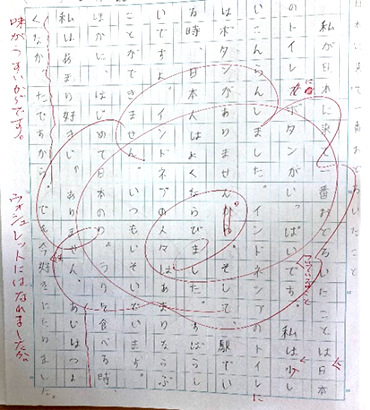 私が日本に来て一番おどろいたことは日本
のトイレボタンがいっぱいです。私は少し
に
こんらんしました。インドネシアのトイレに
はボタンがありません。そして、駅でい
る時、日本人はよくならびました。すばらし
いですよ。インドネシアの人々はあまりならぶ
ことができません。いつもいそいでいます。
ほかに、はじめて日本のりょうりを食べる時、
私はあまり好きじゃありません。あじはつよ
くなかったですから。でも今好きになりました。
味がうすいからです。
ウォシュレットにはなれましたか。